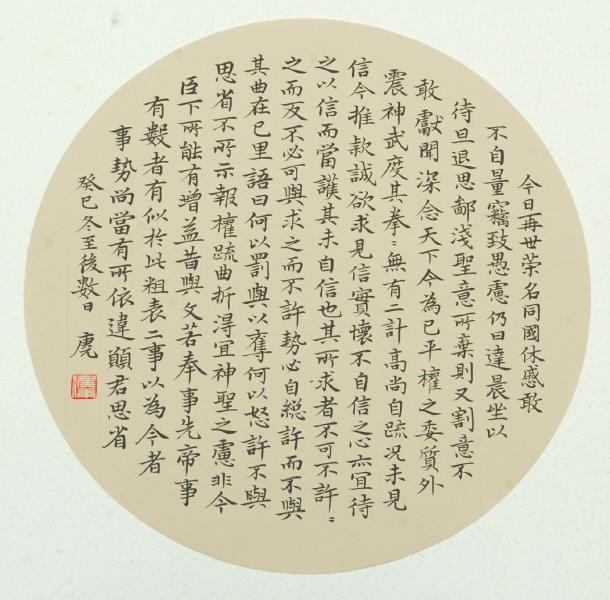 今日再世榮名同國休慼敢
不自量竊致愚慮仍日達晨坐以
待旦退思鄙淺聖意所棄則又割意不
敢獻聞深念天下今為已平權之委質外
震神武度其拳〻無有二計高尚自疏況未見
信今推款誠欲求見信實懷不自信之心亦宜待
之以信而當護其未自信也其所求者不可不許〻
之而反不必可與求之而不許勢必自絕許而不與
其曲在已里語曰何以罰與以奪何以怒許不與
思省不所示報權疏曲折淂宜神聖之慮非今
臣下所能有增益昔與文若奉事先帝事
有數者有似於此粗表二事以為今者
事勢尚當有所依違顧君思省
癸巳冬至後數日 虔